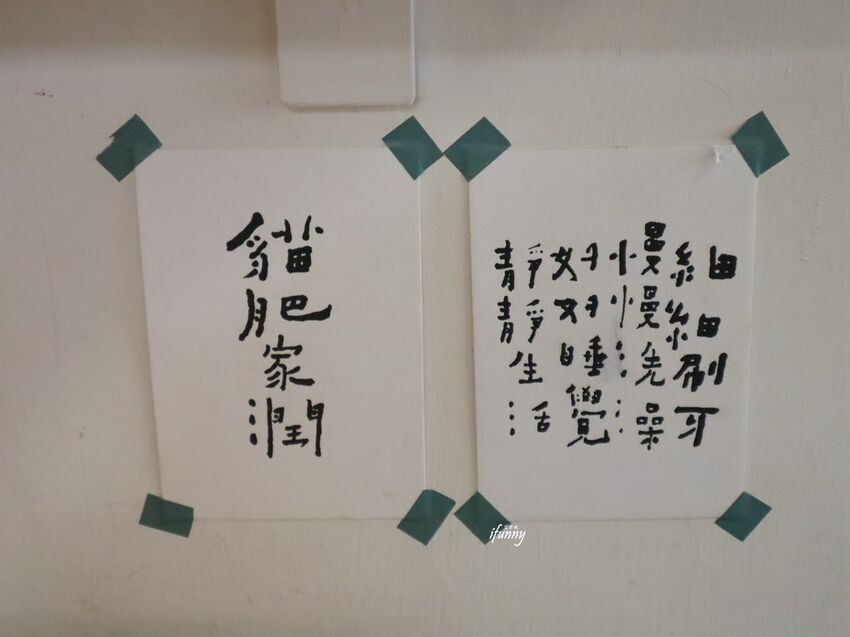 貓肥家潤
細細刷牙
慢慢洗澡
好好睡覺
靜靜生活
ifunny